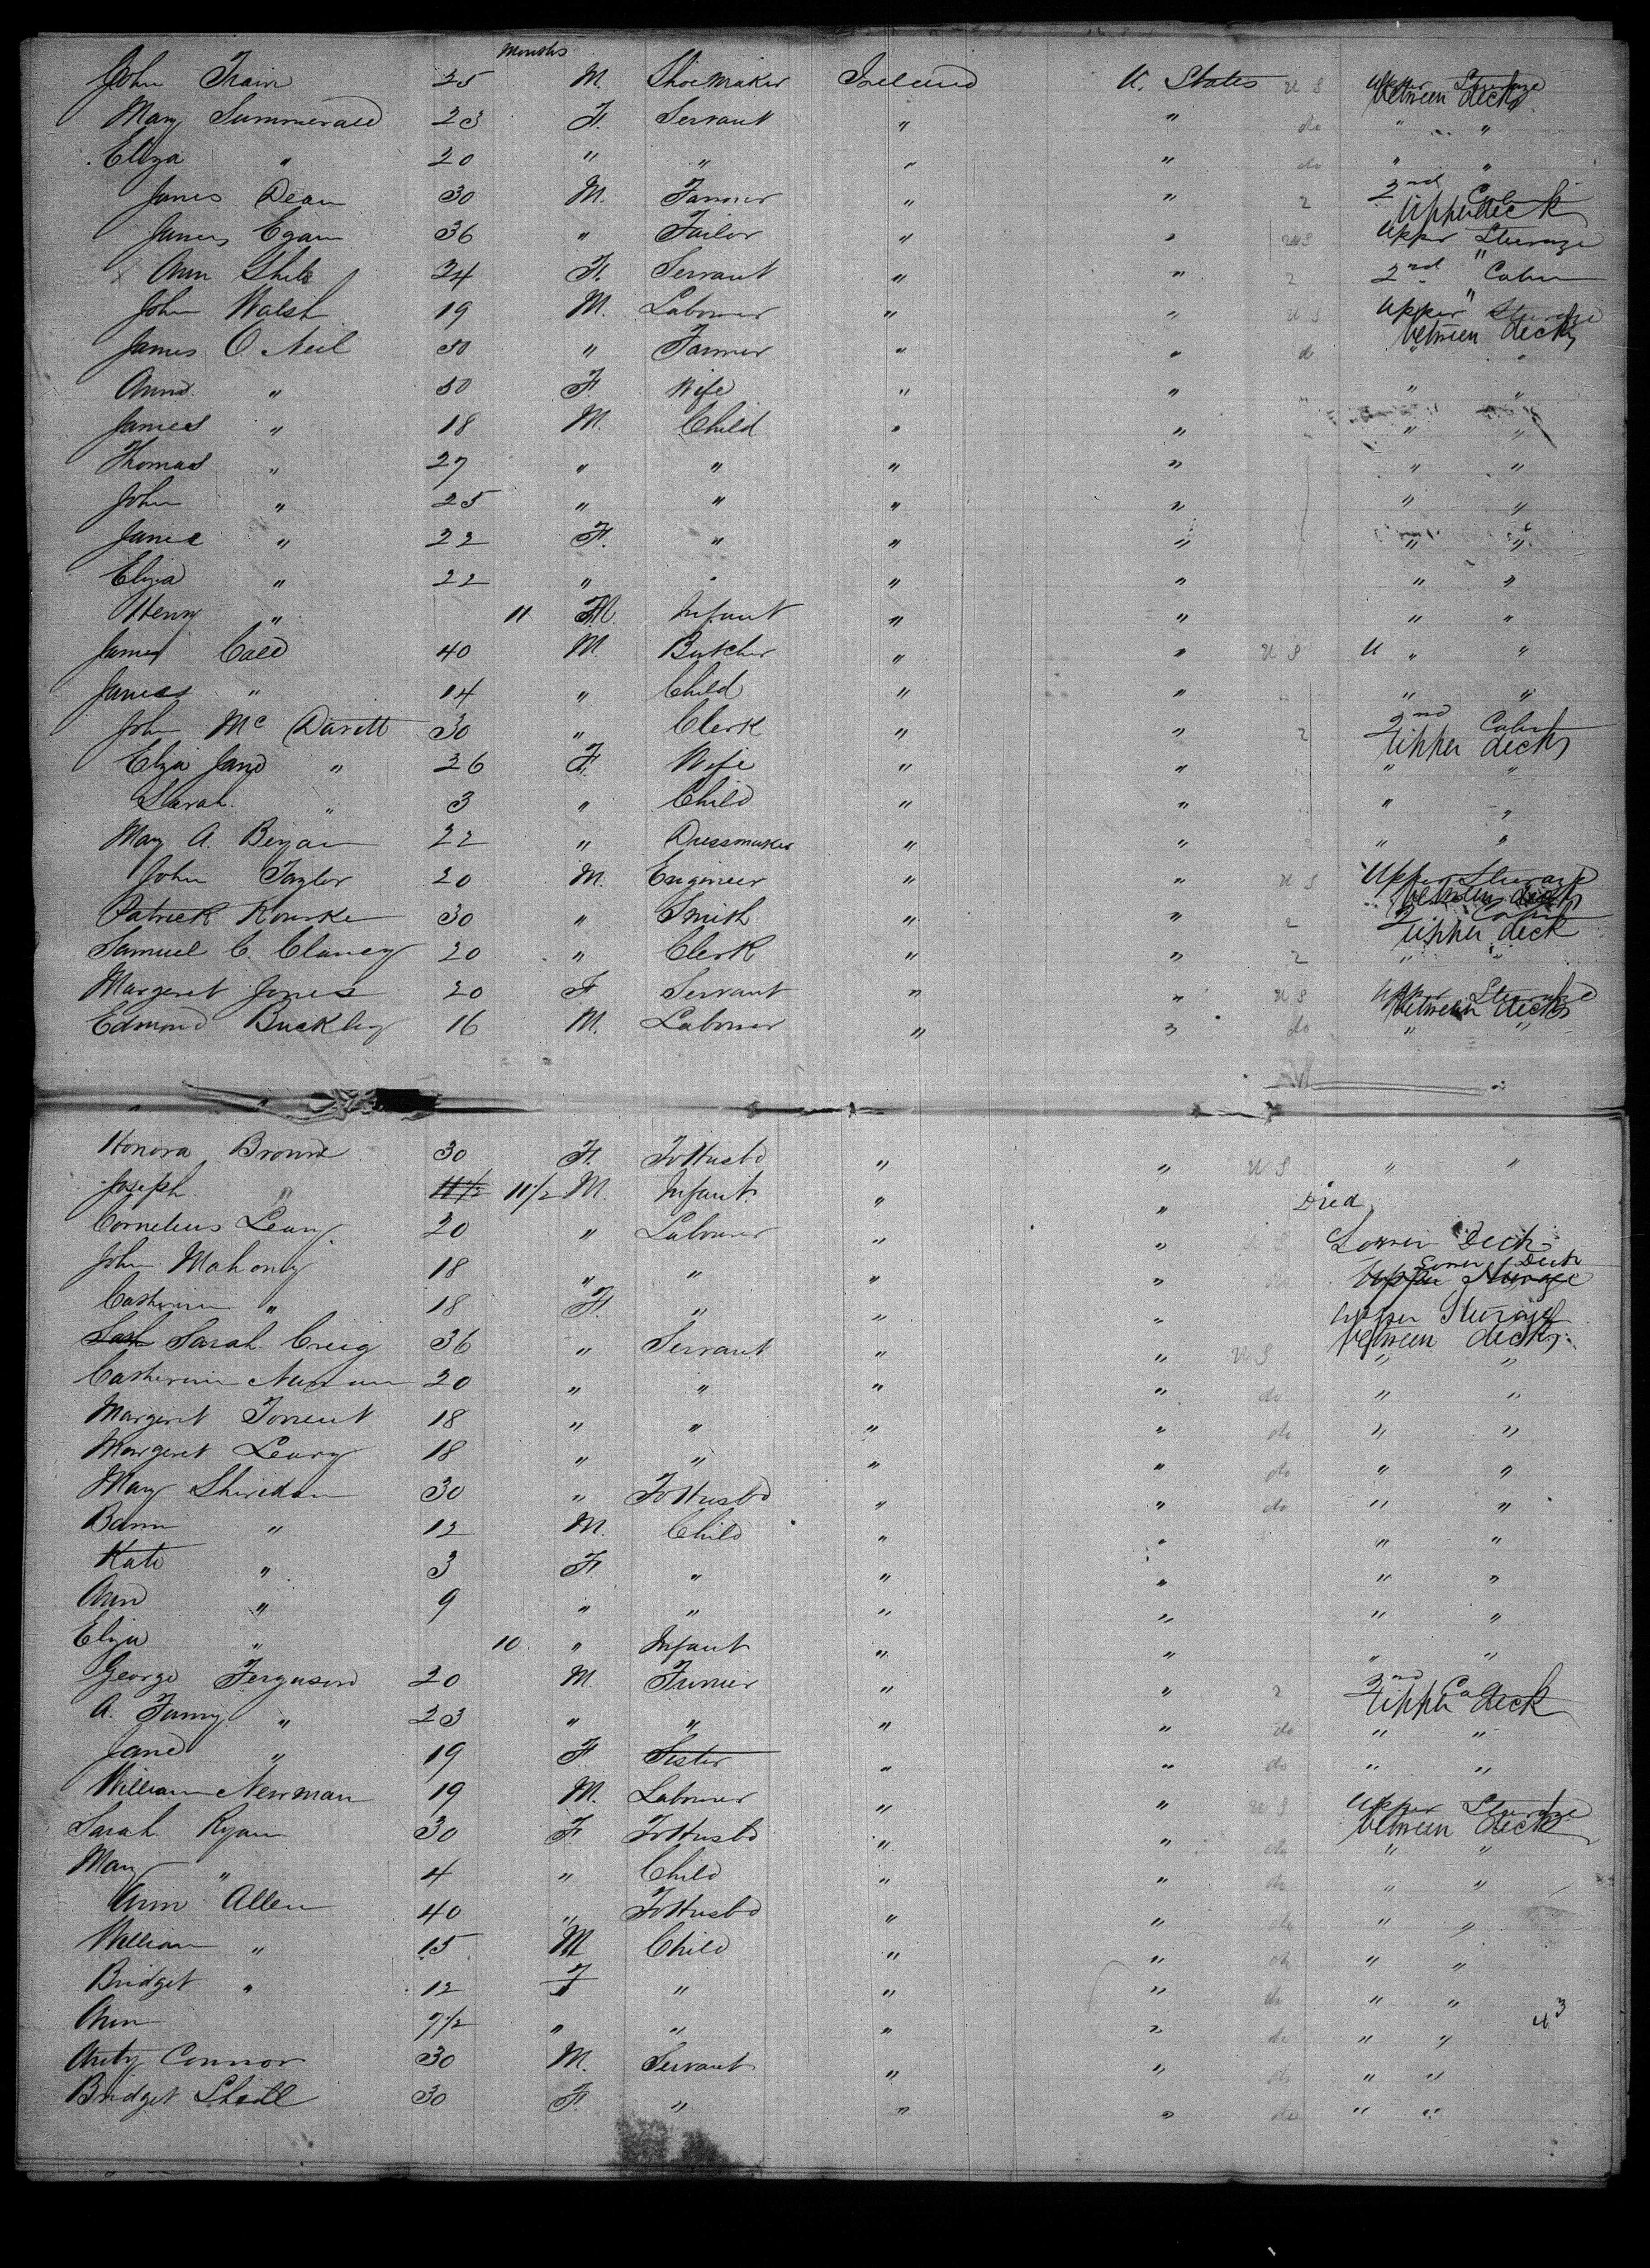 Months
John Train 25 M. Shoemaker Ireland U. States U S Upper Steerage between decks
Mary Summerald 23 F. Servant " " do " "
Eliza " 20 " " " " do " "
James Dean 30 M. Farmer " " 2 2nd Cabin Upper deck
James Egan 36 " Tailor " " U S Upper Steerage
Ann 24 F. Servant " " 2 2nd " Cabin
John Walsh 19 M. Labourer " " U S Upper " Steerage between decks
James O. Neil 50 " Farmer " " do " "
Annd " 50 F. Wife " " " " "
James " 18 M. Child " " " "
Thomas " 27 " " " " " "
John " 25 " " " " " "
Jane " 22 F. " " " " "
Eliza " 22 " " " " " "
Henry " 11 M. Infant " " " "
James 40 M. Butcher " " U S U " "
James " 14 " Child " " " "
John Mc Davitt 30 " Clerk " " 2 2nd Cabin Upper decks
Eliza Jane " 26 F. Wife " " " "
Sarah. " 3 " Child " " " "
May A. 22 " Dressmaker " " " "
John Taylor 20 M. Engineer " " U S Upper Steerage between decks
Patrick Rourke 30 " Smith " " 2 2 Cabin Upper deck
Samuel C. Clancy 20 " Clerk " " 2 " "
Margeret Jones 20 F Servant " " U S Upper Steerage between decks
Edmond Buckley 16 M. Labourer " " do " "
" "
Honora Brown 30 F. To Husbd " " U S " "
Joseph " 11 1/2 11 1/2 M. Infant. " " Died
Cornelius Leary 20 " Labourer " " U S Lower Deck
John Mahony 18 " " " " do Upper Steerage Lower Deck
Catherine " 18 F. " " " Upper Steerage between decks
Sarah Creig 36 " Servant " " U S " "
Catherine 20 " " " " do " "
Margeret Torrent 18 " " " " do " "
Margeret Leary 18 " " " " do " "
Mary Sheridan 30 " To Husbd " " do " "
" 12 M. Child " " " "
Kate " 3 F. " " " " "
Ann " 9 " " " " " "
Eliza " 10. " Infant " " " "
George Ferguson 20 M. " " 2 2nd Cabin Upper deck
A. " 23 " " " " do " "
Jane " 19 F Sister " " do " "
William Newman 19 M. Labourer " " U S Upper Steerage between decks
Sarah Ryan 30 F. To Husbd " " do " "
Mary " 4 " Child " " do " "
Ann Allen 40 " To Husbd " " do " "
William " 15 M Child " " do " "
Bridget " 12 F " " " do " "
Ann 7 1/2 " " " " do " "
Connor 30 M. Servant " " do " "
Bridget 30 F. " " " do " "